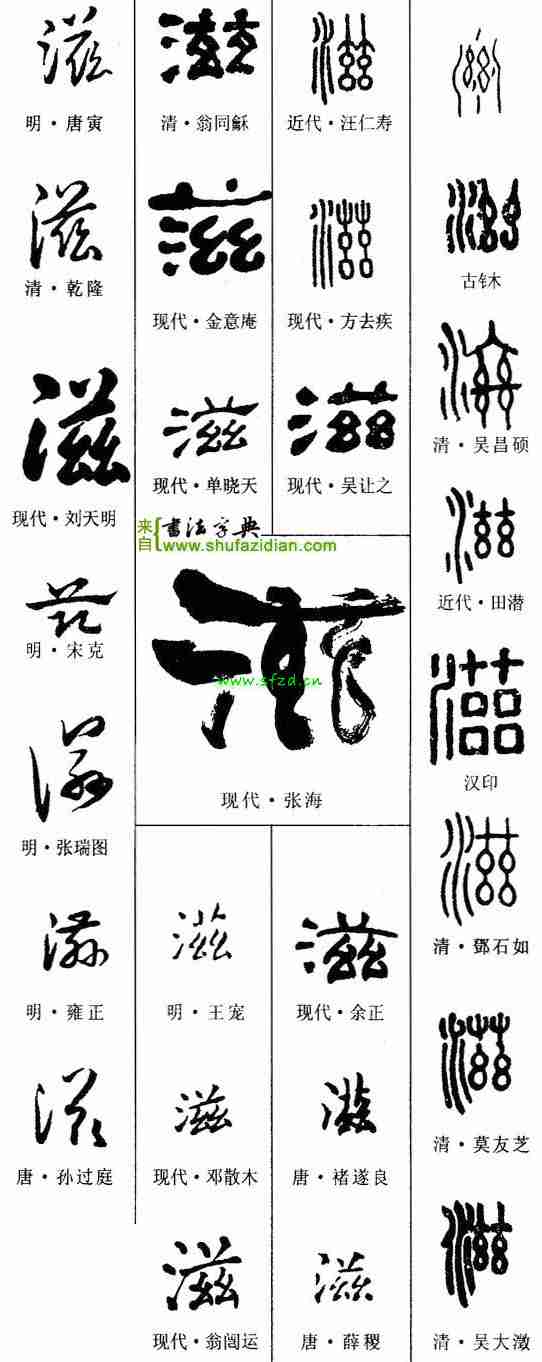 滋
明·唐寅
滋
清·乾隆
滋
现代·刘天明
兹
明·宋克
滋
明·张瑞图
滋
明·雍正
滋
唐·孙过庭
滋
清·翁同穌
滋
现代·金意庵
滋
现代·单晓天
滋
近代·汪仁寿
滋
现代·方去疾
滋
现代·吴让之
来自{書法字典
www.shufazidian.com
滋
www.sfzd.cn
现代·张海
滋
明·王宠
滋
现代·邓散木
滋
现代·翁闿运
滋
现代·余正
滋
唐·褚遂良
滋
唐·薛稷
滋
古钅木
滋
清·吴昌硕
滋
近代·田潜
滋
汉印
滋
清·鄧石如
滋
清·莫友芝
滋
清·吴大澂